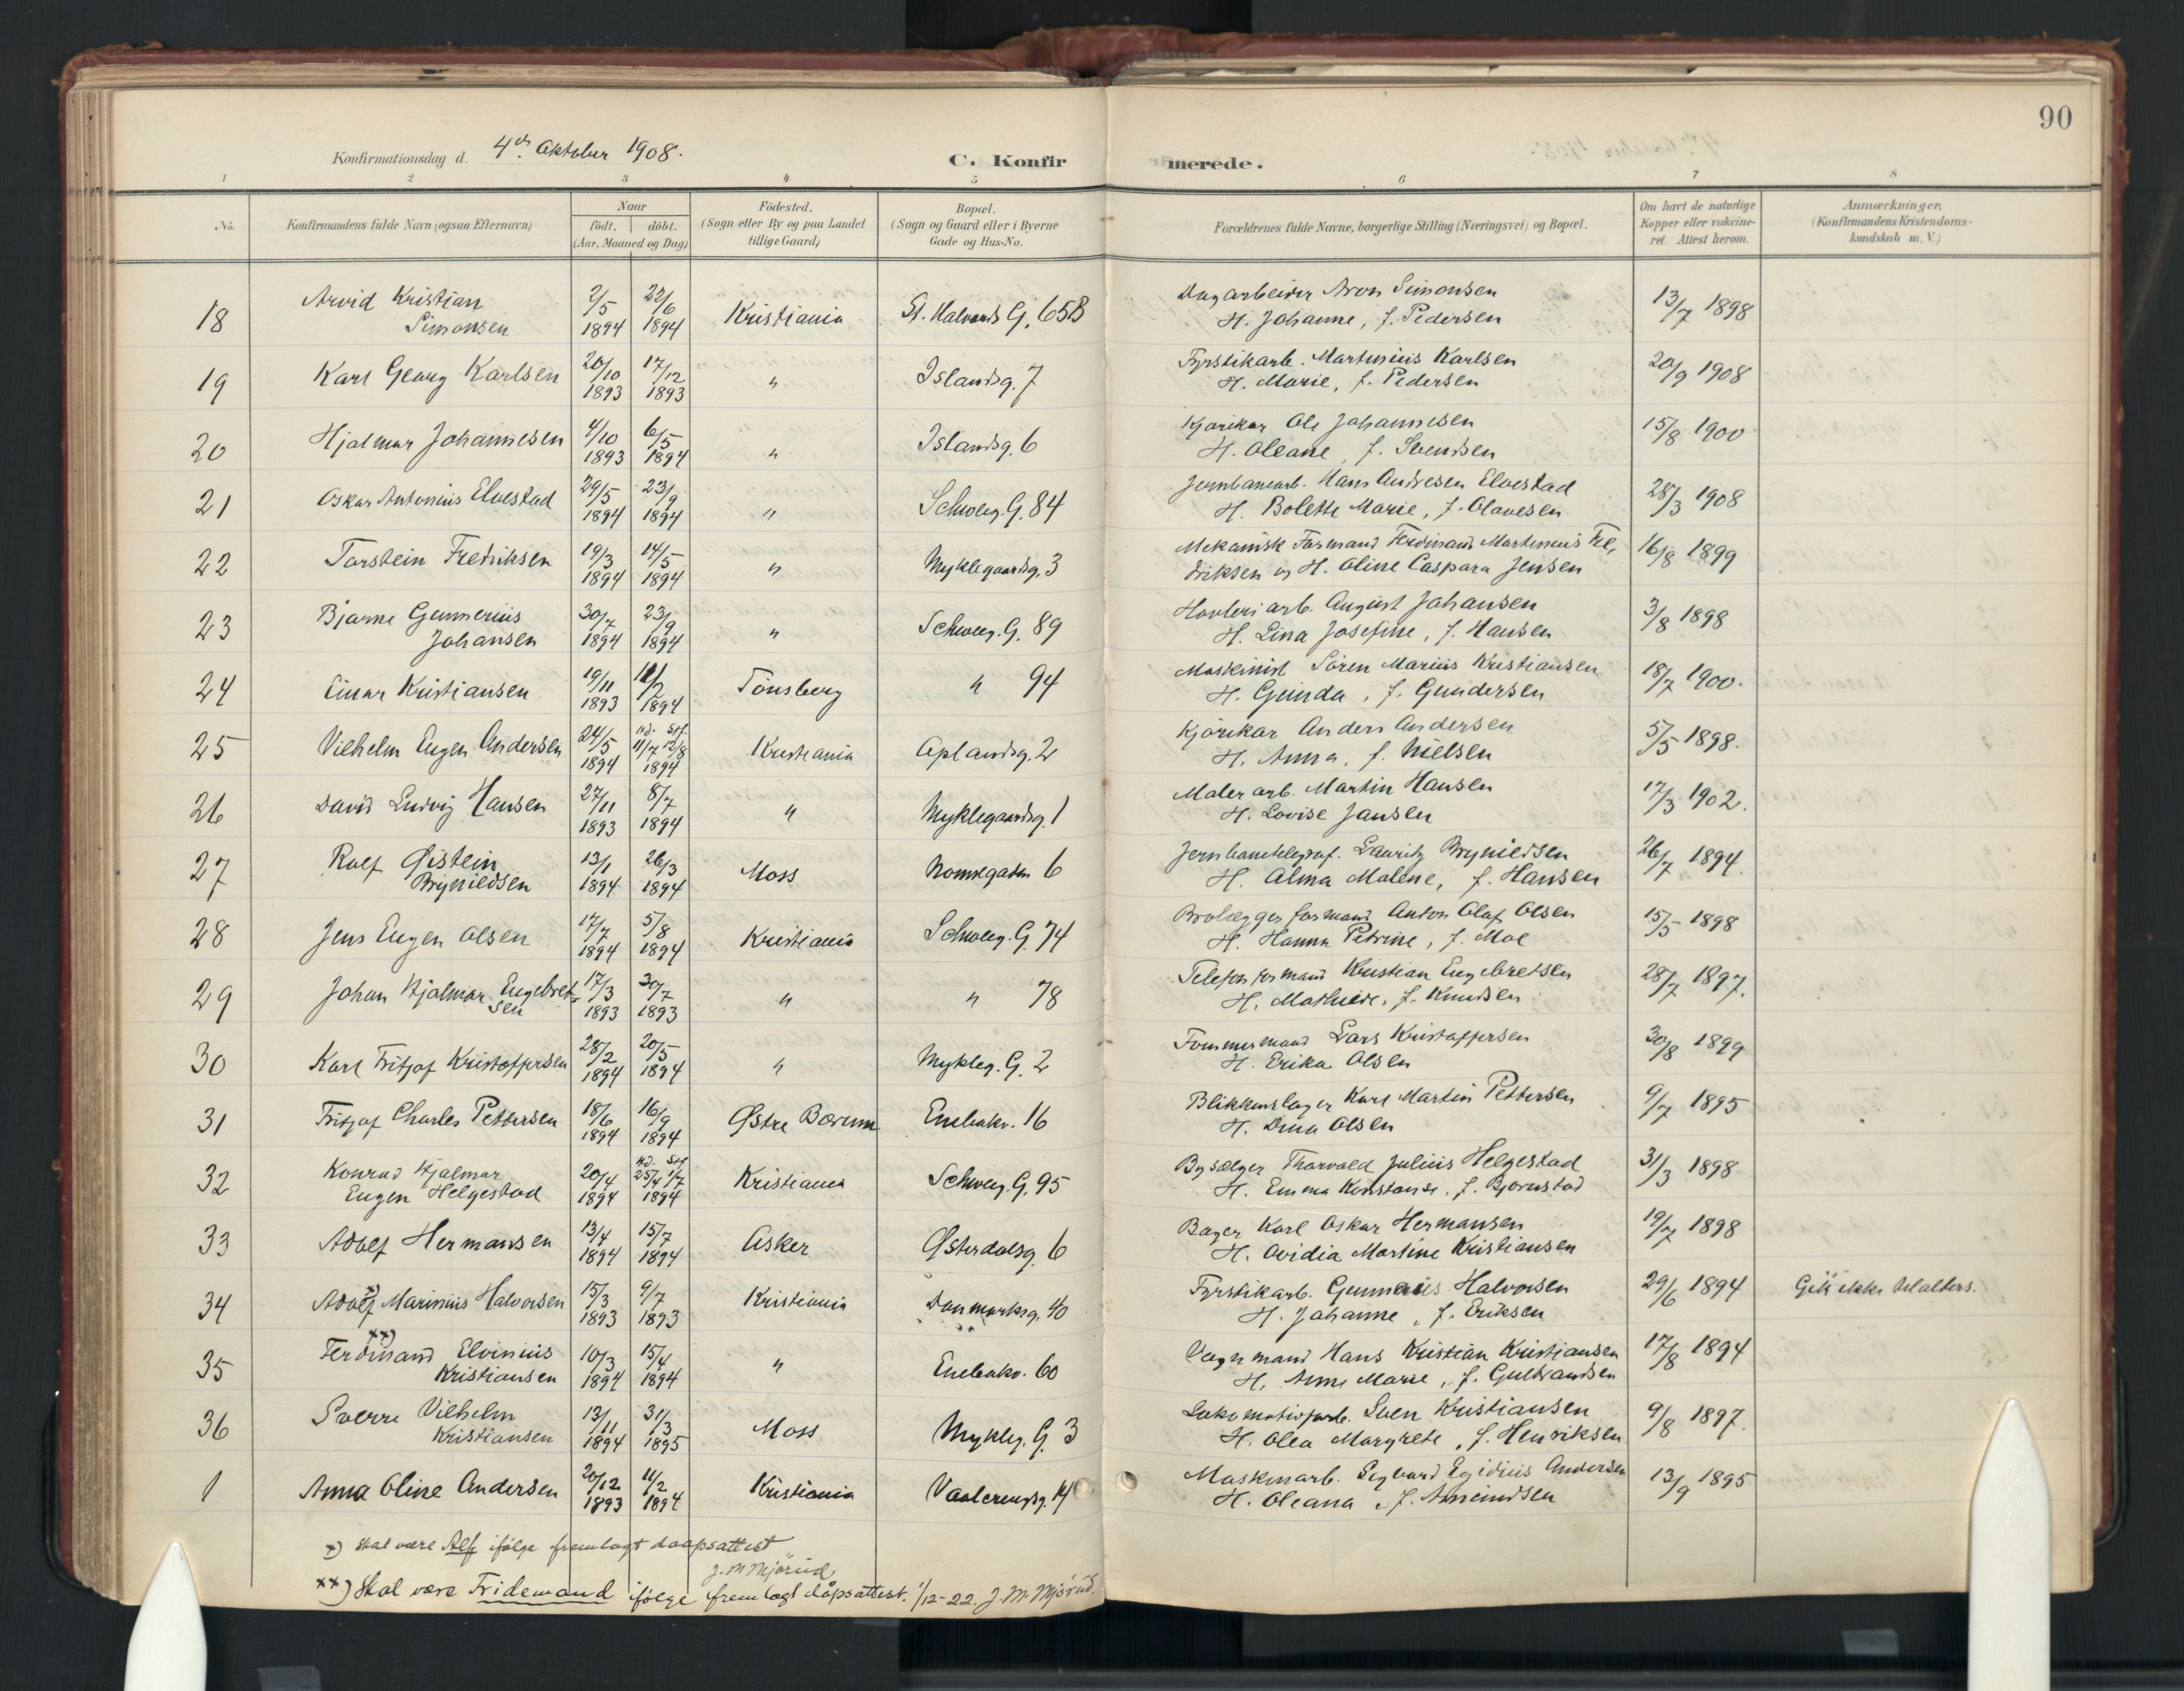 90
Konfirmationsdag d. 4de Oktober 1908.
C. Konfirmerede.
1 2 3 4 5 6 7 8
No. Konfirmandens fulde Navn (ogsaa Efternavn) Naar födt. döbt. (Aar, Maaned og Dag) Födested. (Sogn eller By og paa Landet tillige Gaard) Bopæl. (Sogn og Gaard eller i Byerne Gade og Hus-No. Forældrenes fulde Navne, borgerlige Stilling (Næringsvei) og Bopæl. Om havt de naturlige Kopper eller vakcineret. Attest herom. Anmærkninger. (Konfirmandens Kristendomskundskab m.V.)
18 Arvid Kristian Simonsen 2/5 1894 22/6 1894 Kristiania St. Halvards G. 65B Dagarbeider Aron Simonsen H. Johanne, f. Pedersen 13/7 1898
19 Karl Georg Karlsen 20/10 1893 17/12 1893 " Islandsg. 7 Fyrstikarb. Martinius Karlsen H. Marie, f. Pedersen 20/9 1908
20 Hjalmar Johannesen 4/10 1893 6/5 1894 " Islandsg. 6 Kjørekar Ole Johannesen H. Oleane, f. Svendsen 15/8 1900
21 Oskar Antonius Elvestad 29/5 1894 23/9 1894 " Schweig. G. 84 Jernbanearb. Hans Andresen Elvestad H. Bolette Marie, f. Olavesen 28/3 1908
22 Torstein Fredriksen 19/3 1894 14/5 1894 " Myklegaardsg. 3 Mekanisk Formand Ferdinand Martinius Fredriksen og H. Oline Caspara Jensen 16/8 1899
23 Bjarne Gunnerius Johansen 30/7 1894 23/9 1894 " Schweig. G. 89 Høvleriarb. August Johansen H. Lina Josefine, f. Hansen 3/8 1898
24 Einar Kristiansen 19/11 1893 11/2 1894 Tönsberg " 94 Maskinist Sören Marius Kristiansen H. Gunda, f. Gundersen 18/7 1900.
25 Vilhelm Eugen Andersen 24/5 1894 nd. 11/7 Stf. 12/8 1894 Kristiania Oplandsg. 2 Kjörekar Anders Andersen H. Anna, f. Nielsen 5/5 1898.
26 David Ludvig Hansen 27/11 1893 8/7 1894 " Myklegaardsg. 1 Malerarb. Martin Hansen H. Lovise Jansen 17/3 1902.
27 Rolf Øistein Brynildsen 13/1 1894 26/3 1894 Moss Nonnegaden 6 Jernbanetelegraf. Lauritz Brynildsen H. Alma Malene, f. Hansen 26/7 1894.
28 Jens Eugen Olsen 17/7 1894 5/8 1894 Kristiania Schweig. G. 74 Brolæggerformand Anton Olaf Olsen H. Hanna Petrine, f. Moe 15/5 1898
29 Johan Hjalmar Engebretsen 17/3 1893 30/7 1893 " " 78 Telefonformand Kristian Engebretsen H. Mathilde, f. Knudsen 28/7 1897.
30 Karl Fritjof Kristoffersen 28/2 1894 20/5 1894 " Mykleg. G. 2 Tømmermand Lars Kristoffersen H. Erika Olsen 30/8 1899
31 Fritjof Charles Pettersen 18/6 1894 16/9 1894 Østre Bærum Enebakv. 16 Blikkenslager Karl Martin Pettersen H. Dina Olsen 9/7 1895
32 Konrad Hjalmar Eugen Helgestad 20/4 1894 nd. 25/4 Stf. 1/7 1894 Kristiania Schweig. G. 95 Bysælger Thorvald Julius Helgestad H. Emma Konstanse, f. Bjørnstad 31/3 1898
33 Adolf Hermansen 13/4 1894 15/7 1894 Asker Østerdalsg. 6 Bager Karl Oskar Hermansen H. Ovidia Martine Kristiansen 19/7 1898
34 Adolf x) Marinius Halvorsen 15/3 1893 9/7 1893 Kristiania Danmarksg. 40 Fyrstikarb. Gunnerius Halvorsen H. Johanne, f. Eriksen 29/6 1894 Gik ikke til alters.
35 Ferdinand xx) Elvinius Kristiansen 10/3 1894 15/4 1894 " Enebakv. 60 Vognmand Hans Kristian Kristiansen H. Anne Marie, f. Gulbrandsen 17/8 1894
36 Sverre Vilhelm Kristiansen 13/11 1894 31/3 1895 Moss Mykleg. G. 3 Lokomotivfyrb. Sven Kristiansen H. Olea Margrete, f. Henriksen 9/8 1897.
1 Anna Oline Andersen 20/12 1893 11/2 1894 Kristiania Vaalerengg. 14 Maskinarb. Sigvard Egidius Andersen H. Oleana, f. Amundsen 13/9 1895
x) skal være Alf ifølge fremlagt daapsattest
J. M. Mjörud
xx) Skal være Fridemand ifølge fremlagt dåpsattest. 1/12-22. J. M. Mjörud.